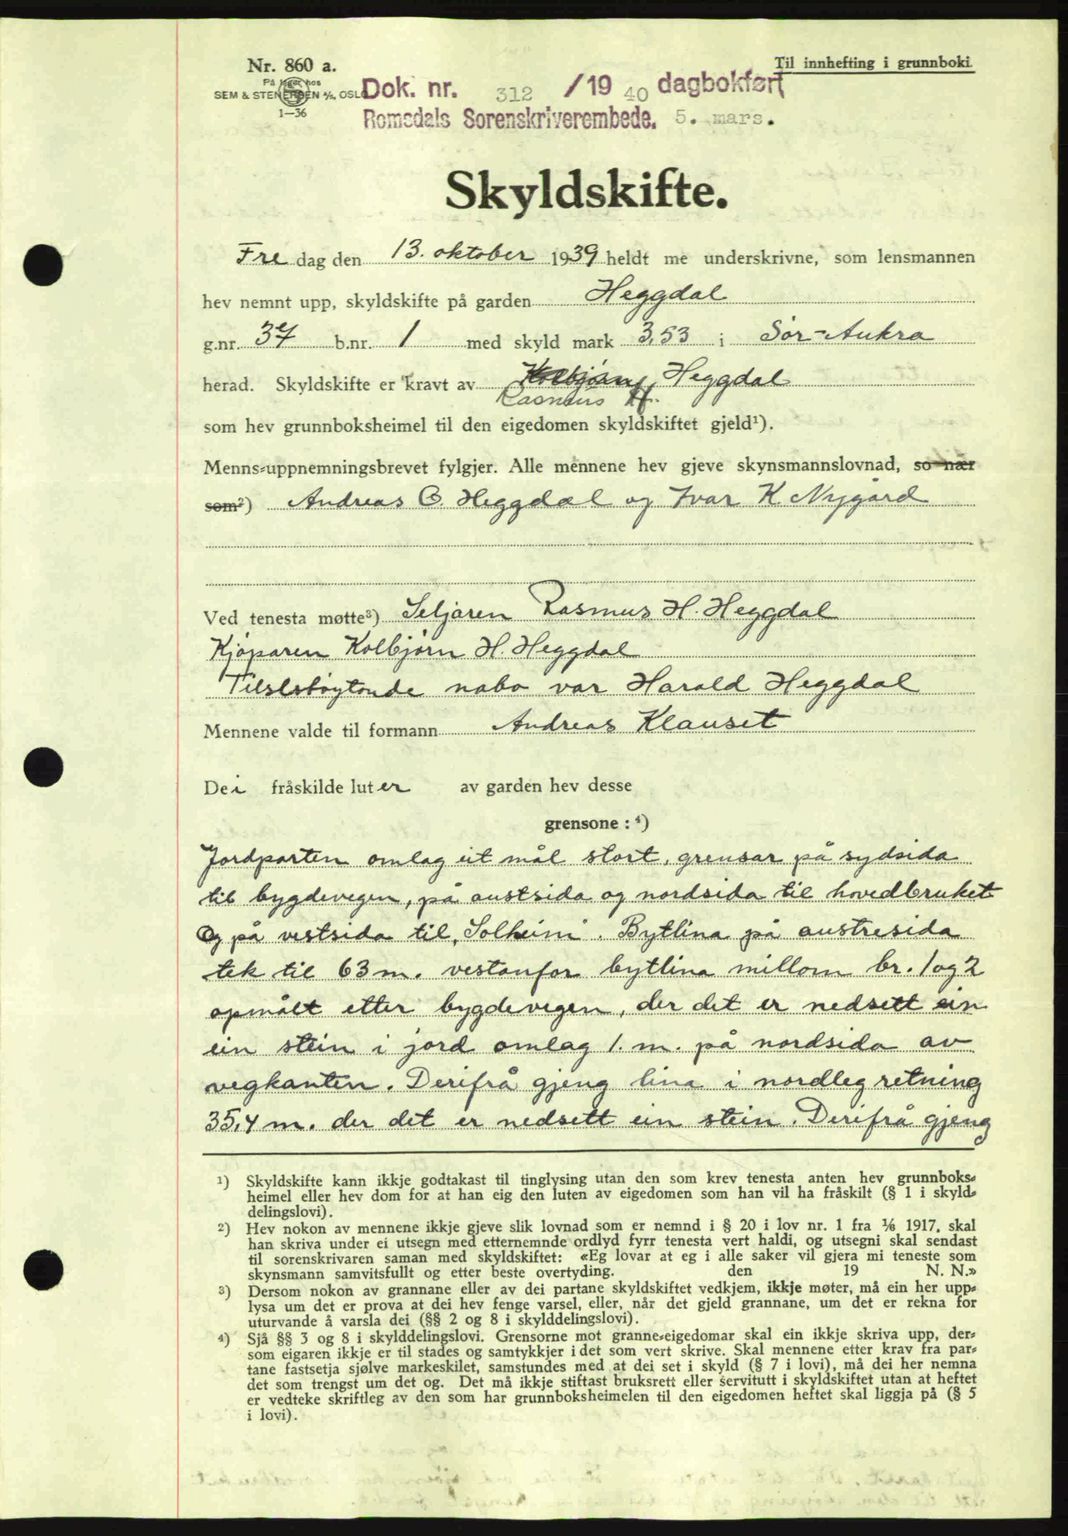 Nr. 860 a.
På lager hos
SEM & STENERSEN A/S, OSLO
1—36
Til innhefting i grunnboki.
Dok. nr. 312 /19 40 dagbokført
Romsdals Sorenskriverembede. 5. mars.
Skyldskifte.
Fre dag den 13. oktober 1939 heldt me underskrivne, som lensmannen
hev nemnt upp, skyldskifte på garden Heggdal
g.nr. 37 b.nr. 1 med skyld mark 3,53 i Sør-Aukra
herad. Skyldskifte er kravt av Kolbjørn H. Heggdal
Rasmus H.
som hev grunnboksheimel til den eigedomen skyldskiftet gjeld¹).
Menns-uppnemningsbrevet fylgjer. Alle mennene hev gjeve skynsmannslovnad, so nær
som²) Andreas O. Heggdal og Ivar K. Nygård
Ved tenesta møtte³) Seljaren Rasmus H. Heggdal
Kjøparen Kolbjørn H. Heggdal
Tilstøytande nabo var Harald Heggdal
Mennene valde til formann Andreas Klauset
Dei fråskilde luter av garden hev desse
grensone: ⁴)
Jordparten omlag eit mål stort, grensar på sydsida
til bygdevegen, på austsida og nordsida til hovedbruket
Og på vestsida til „Solheim". Bytlina på austresida
tek til 63 m. vestanfor bytlina millom br. 1 og 2
opmålt etter bygdevegen, der det er nedsett ein
ein stein i jord omlag 1. m. på nordsida av
vegkanten. Derifrå gjeng lina i nordleg retning
35,4 m. der det er nedsett ein stein. Derifrå gjeng
¹) Skyldskifte kann ikkje godtakast til tinglysing utan den som krev tenesta anten hev grunnboks-
heimel eller hev dom for at han eig den luten av eigedomen som han vil ha fråskilt (§ 1 i skyld-
delingslovi).
²) Hev nokon av mennene ikkje gjeve slik lovnad som er nemnd i § 20 i lov nr. 1 fra 1/6 1917, skal
han skriva under ei utsegn med etternemnde ordlyd fyrr tenesta vert haldi, og utsegni skal sendast
til sorenskrivaren saman med skyldskiftet: «Eg lovar at eg i alle saker vil gjera mi teneste som
skynsmann samvitsfullt og etter beste overtyding. den 19 N. N.»
³) Dersom nokon av grannane eller av dei partane skyldskiftet vedkjem, ikkje møter, må ein her upp-
lysa um det er prova at dei hev fenge varsel, eller, når det gjeld grannane, um det er rekna for
uturvande å varsla dei (§§ 2 og 8 i skylddelingslovi).
⁴) Sjå §§ 3 og 8 i skylddelingslovi. Grensorne mot granne-eigedomar skal ein ikkje skriva upp, der-
som eigaren ikkje er til stades og samtykkjer i det som vert skrive. Skal mennene etter krav fra par-
tane fastsetja sjølve markeskilet, samstundes med at dei set i skyld (§ 7 i lovi), må dei her nemna
det som trengst um det og. Det må ikkje stiftast bruksrett eller servitutt i skyldskiftet utan at heftet
er vedteke skriftleg av den som har grunnboksheimelen til den eigedomen heftet skal liggja på (§ 5
i lovi).